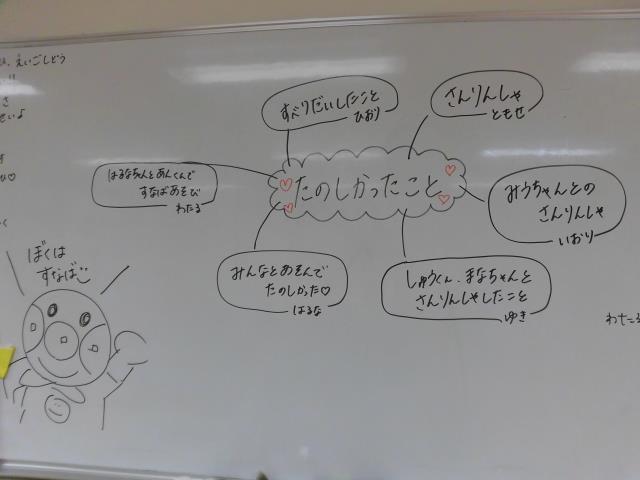 えいごしどう
すべりだいしたこと
ひおり
さんりんしゃ
ともせ
はるなちゃんとあんくんで
すなばあそび
わたる
たのしかったこと
みうちゃんとの
さんりんしゃ
いおり
みんなとあそんで
たのしかった♡
はるな
しゅうくん、まなちゃんと
さんりんしゃしたこと
ゆき
ぼくは
すなば